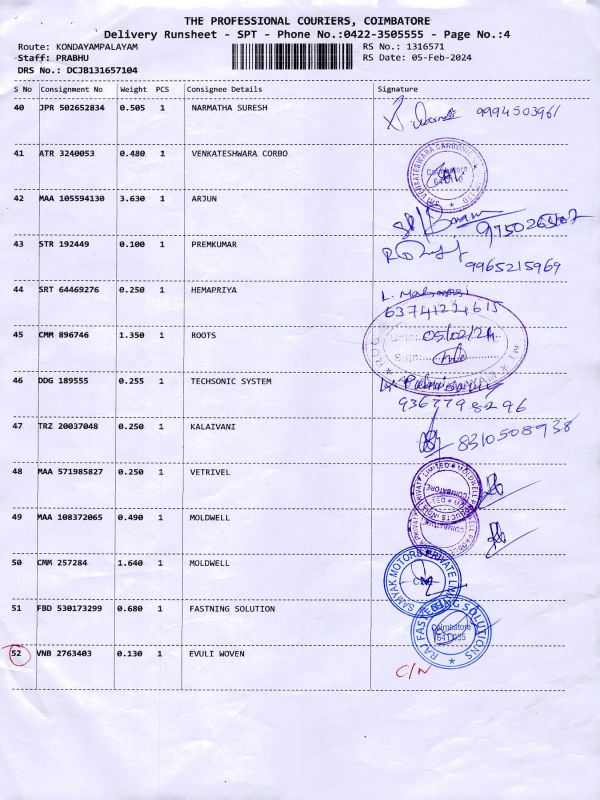 THE PROFESSIONAL COURIERS, COIMBATORE
Delivery Runsheet - SPT - Phone No.:0422-3505555 - Page No.:4
Route: KONDAYAMPALAYAM RS No.: 1316571
Staff: PRABHU RS Date: 05-Feb-2024
DRS No.: DCJB131657104
S No Consignment No Weight PCS Consignee Details Signature
40 JPR 502652834 0.505 1 NARMATHA SURESH 9994503961
41 ATR 3240053 0.480 1 VENKATESHWARA CORBO
42 MAA 105594130 3.630 1 ARJUN
43 STR 192449 0.100 1 PREMKUMAR
9965215969
44 SRT 64469276 0.250 1 HEMAPRIYA
6374121615
45 CMM 896746 1.350 1 ROOTS Date: 05/02/24
Sign:
46 DDG 189555 0.255 1 TECHSONIC SYSTEM
9367798296
47 TRZ 20037048 0.250 1 KALAIVANI 8310508938
48 MAA 571985827 0.250 1 VETRIVEL
49 MAA 108372065 0.490 1 MOLDWELL
50 CMM 257284 1.640 1 MOLDWELL
SAMYAK MOTORS PRIVATE LIMITED
51 FBD 530173299 0.680 1 FASTNING SOLUTION
RAJ FASTENING SOLUTIONS
Coimbatore
641 035
52 VNB 2763403 0.130 1 EVULI WOVEN
C/N